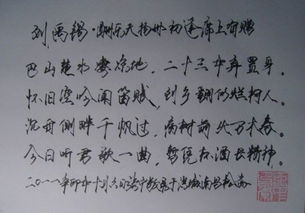 刘禹锡·酬乐天扬州初逢席上有赠
巴山楚水凄凉地，二十三年弃置身。
怀旧空吟闻笛赋，到乡翻似烂柯人。
沉舟侧畔千帆过，病树前头万木春。
今日听君歌一曲，暂凭杯酒长精神。
二〇一一年